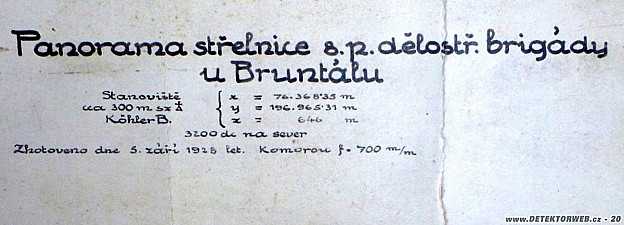 Panorama střelnice s.p. dělostř. brigády
u Bruntálu
Stanoviště x = 76.368'35 m
cca 300 m sz △ y = 196.965'31 m
Köhler B. z = 646 m
3200 dc na sever
Zhotoveno dne 5. září 1928 let. Komorou f = 700 m/m
www.DETEKTORWEB.cz - 20